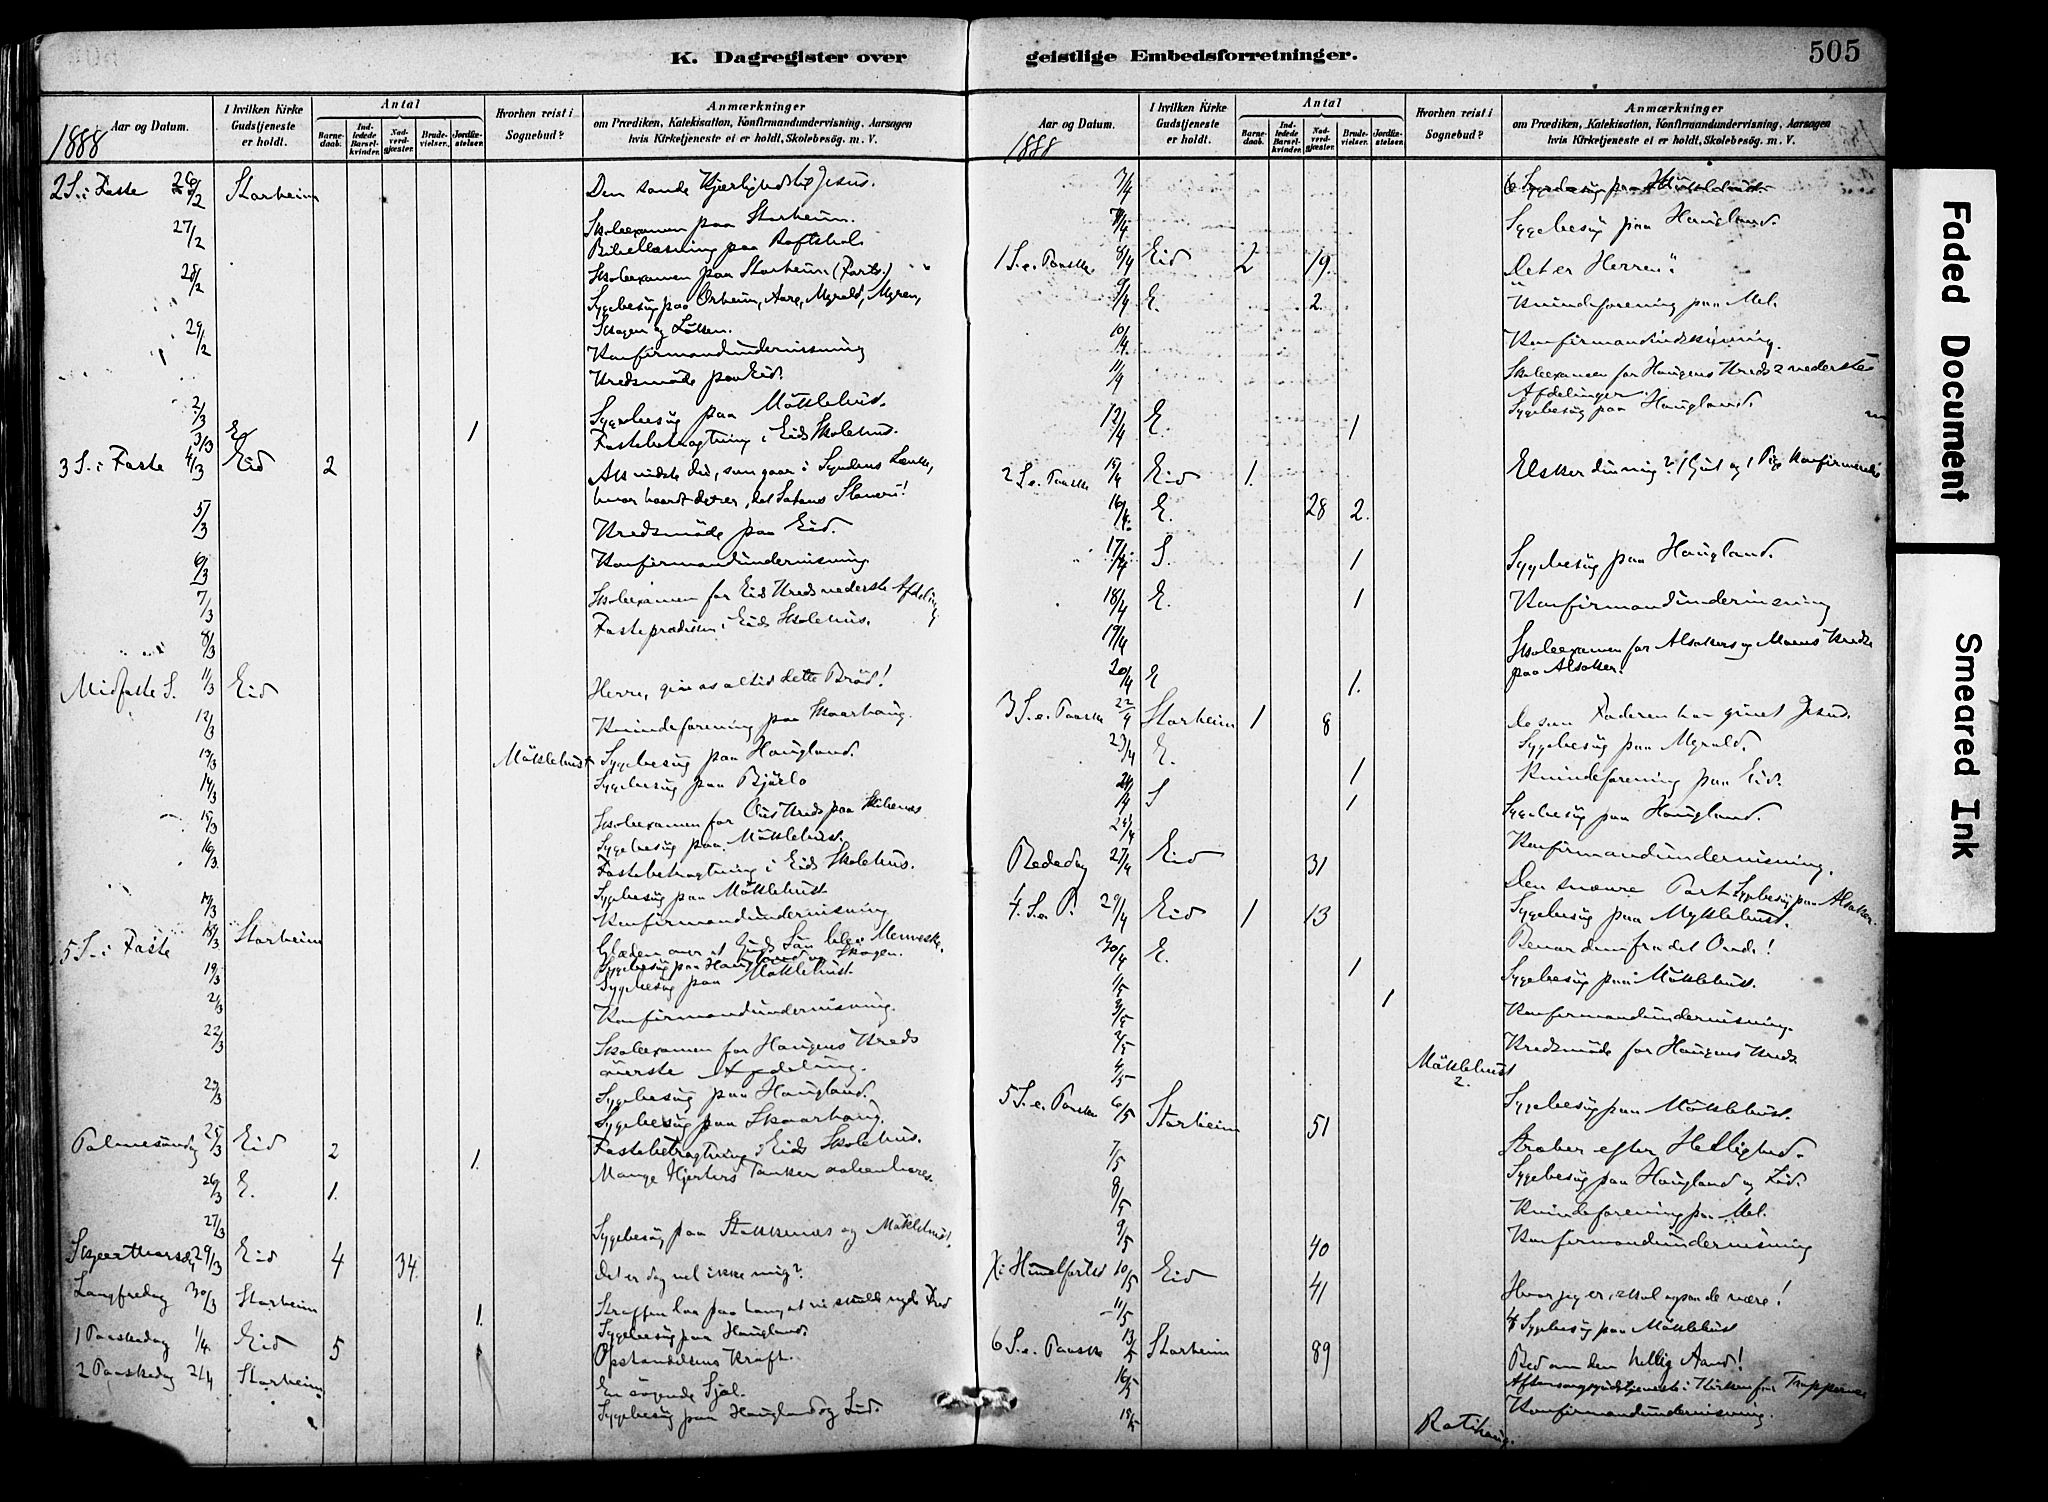 K. Dagregister over
geistlige Embedsforretninger.
505
Aar og Datum.
I hvilken Kirke Gudstjeneste er holdt.
Antal
Barnedaab.
Indledede Barselkvinder.
Nadverdgjæster.
Brudevielser.
Jordfæstelser.
Hvorhen reist i Sognebud?
Anmærkninger
om Prædiken, Katekisation, Konfirmandundervisning, Aarsagen
hvis Kirketjeneste ei er holdt, Skolebesøg. m. V.
1888
2 S. i Faste 26/2 Starheim Den sande Kjærlighed til Jesus.
27/2 Skoleexamen paa Starheim.
Bibellæsning paa
28/2 Skoleexamen paa Starheim (Forts.)
Sygebesøg paa Orheim, Aare, Myrold, Myren,
Skogen og Løkken.
29/2 Konfirmandundervisning
Kredsmøde paa Eid.
2/3 Sygebesøg paa Möklebust.
3/3 E. 1 Fastebetragtning i Eids Skolehus.
3 S. i Faste 4/3 Eid 2 som gaar i Syndens Lænke,
hvor haardt det er, det Satans Slaveri!
5/3 Kredsmøde paa Eid.
6/3 Konfirmandundervisning
7/3 Skoleexamen for Eids Kreds nederste Afdeling
8/3 Fasteprædiken i Eids Skolehus.
Midfaste S. 11/3 Eid Herre, giv os altid dette Brød!
12/3 Kvindeforening paa Skaarhaug.
13/3 Möklebust Sygebesøg paa Haugland.
14/3 Sygebesøg paa Bjørlo
15/3 Skoleexamen for Kreds paa
16/3 Sygebesøg paa Möklebust.
Fastebetragtning i Eids Skolehus.
17/3 Sygebesøg paa Möklebust
Konfirmandundervisning
5 S. i Faste 18/3 Starheim Glæden over at Guds Søn blev Menneske.
Sygebesøg paa Haugland og Skogen.
19/3 Sygebesøg paa Möklebust.
21/3 Konfirmandundervisning.
22/3 Skoleexamen for Haugens Kreds
øverste Afdeling.
23/3 Sygebesøg paa Haugland.
Sygebesøg paa Skaarhaug.
Fastebetragtning i Eids Skolehus.
Palmesøndag 25/3 Eid 2 1. Mange Hjerters Tanker aabenbares.
26/3 E. 1.
27/3 Sygebesøg paa Stokkenes og Möklebust.
Skjærthorsd. 29/3 Eid 4 34. Det er dog vel ikke mig?
Langfredag 30/3 Starheim 1. Straffen laa paa ham, at vi skulle nyde Fred
Sygebesøg paa Haugland.
1 Paaskedag 1/4 Eid 5 Opstandelsens Kraft.
2 Paaskedag 2/4 Starheim En søgende Sjæl.
Sygebesøg paa Haugland og Eid.
Aar og Datum.
I hvilken Kirke Gudstjeneste er holdt.
Antal
Barnedaab.
Indledede Barselkvinder.
Nadverdgjæster.
Brudevielser.
Jordfæstelser.
Hvorhen reist i Sognebud?
Anmærkninger
om Prædiken, Katekisation, Konfirmandundervisning, Aarsagen
hvis Kirketjeneste ei er holdt, Skolebesøg. m. V.
1888
7/4
7/4 Sygebesøg paa Haugland.
1 S. e. Paaske 8/4 Eid 2 19. "Det er Herren"
9/4 E. 2. Kvindeforening paa Mel.
10/4 Konfirmandindskrivning.
11/4 Skoleexamen for Haugens Kreds 2 nederste
Afdelinger.
12/4 E. 1 Sygebesøg paa Haugland.
2 S. e. Paaske 15/4 Eid 1. Elsker du mig? 1 Gut og 1 Pige Konfirmerede
16/4 E. 28 2.
17/4 S. 1 Sygebesøg paa Haugland.
18/4 E. 1 Konfirmandundervisning
19/4 Skoleexamen for Alsakers og Kreds
paa Alsaker.
20/4 E 1.
3 S. e. Paaske 22/4 Starheim 1 8 De som Faderen har givet Jesus.
23/4 E. 1 Sygebesøg paa Myrold.
24/4 S 1 Kvindeforening paa Eid.
Sygebesøg paa Haugland.
25/4 Konfirmandundervisning.
Bededag 27/4 Eid 31 Den snævre Port. Sygebesøg paa Alsaker.
4. S. e. P. 29/4 Eid 1 13 Sygebesøg paa Myklebust.
30/4 E. 1 Bevar dem fra det Onde!
1/5 1 Sygebesøg paa Möklebust.
2/5 Konfirmandundervisning.
2/5 Kredsmøde for Haugens Kreds
4/5 Möklebust 2.
5 S. e. Paaske 6/5 Starheim 51 Sygebesøg paa Möklebust.
Straber efter Hellighed.
7/5 Sygebesøg paa Haugland og Eid.
8/5 Kvindeforening paa Mel.
9/5 40 Konfirmandundervisning
Kr. Himelfartsd 10/5 Eid 41 Hvor jeg er, skal ogsaa de være!
11/5 Sygebesøg paa Möklebust
6 S. e. Paaske 13/5 Starheim 89 Bed om den hellig Aand!
16/5 Aftensangsgudstjeneste i Kirken for Tropperne
15/5 Konfirmandundervisning.
Faded Document
Smeared Ink